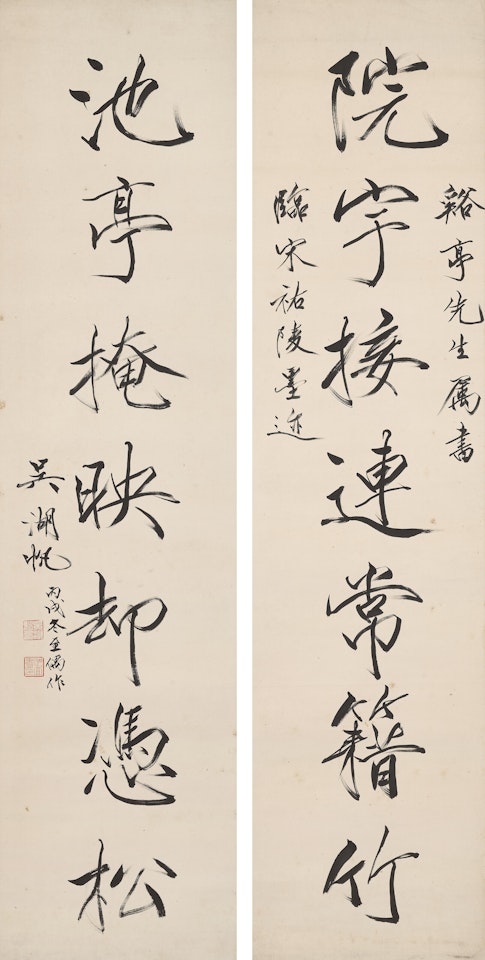 谿亭先生属書
院宇接連常籍竹
臨宋祐陵墨迹
池亭掩映却憑松
吴湖帆
丙戌冬至偶作